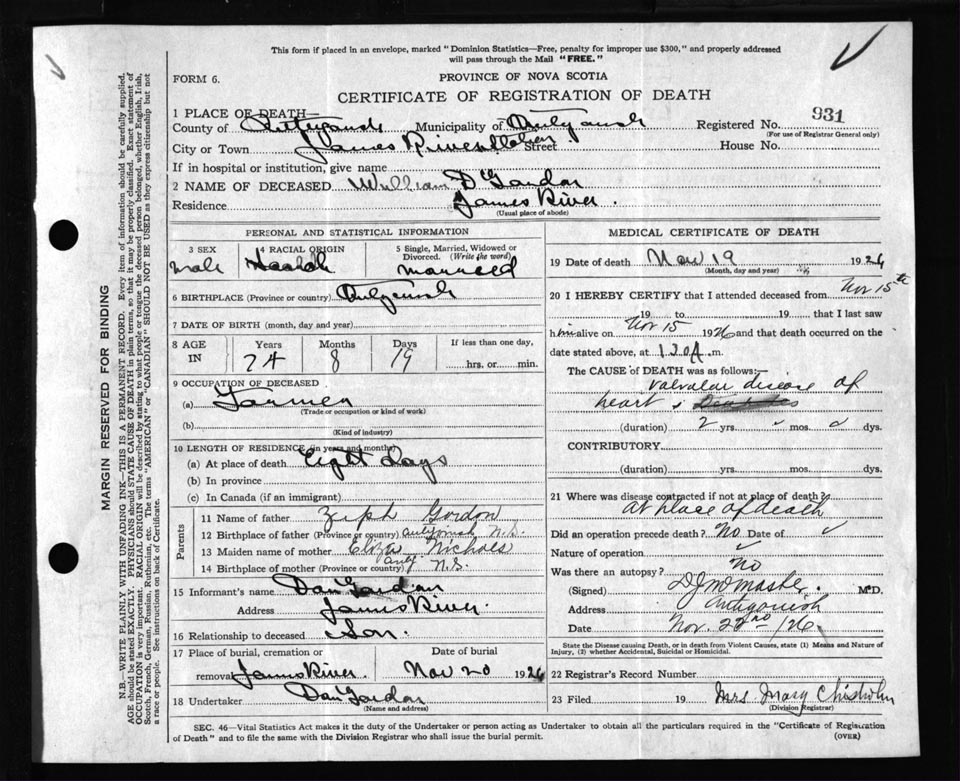 This form if placed in an envelope, marked "Dominion Statistics—Free, penalty for improper use $300," and properly addressed
will pass through the Mail "FREE."
FORM 6.
PROVINCE OF NOVA SCOTIA
CERTIFICATE OF REGISTRATION OF DEATH
931
1 PLACE OF DEATH—
County of Antigonish Municipality of Antigonish Registered No.
(For use of Registrar General only)
City or Town James River Station Street House No.
If in hospital or institution, give name
2 NAME OF DECEASED William D Gordon
Residence James River.
(Usual place of abode)
PERSONAL AND STATISTICAL INFORMATION
3 SEX
male
4 RACIAL ORIGIN
Scotch
5 Single, Married, Widowed or Divorced. (Write the word)
married
6 BIRTHPLACE (Province or country) Antigonish
7 DATE OF BIRTH (month, day and year)
8 AGE IN
Years Months Days If less than one day,
74 8 19 hrs. or min.
9 OCCUPATION OF DECEASED
(a) Farmer
(Trade or occupation or kind of work)
(b)
(Kind of industry)
10 LENGTH OF RESIDENCE (in years and months)
(a) At place of death Eight Days
(b) In province
(c) In Canada (if an immigrant)
Parents
11 Name of father Ziph Gordon
12 Birthplace of father (Province or country) Antigonish N.S.
13 Maiden name of mother Eliza Nichols
14 Birthplace of mother (Province or country) Antg N.S.
15 Informant's name Dan Gordon
Address James River.
16 Relationship to deceased Son.
17 Place of burial, cremation or Date of burial
removal James River Nov 20 1926
18 Undertaker Dan Gordon
(Name and address)
MEDICAL CERTIFICATE OF DEATH
19 Date of death Nov 19 1926
(Month, day and year)
20 I HEREBY CERTIFY that I attended deceased from Nov 15th
19 to 19 that I last saw
him alive on Nov 15 1926 and that death occurred on
date stated above, at 1 30 A. m.
The CAUSE of DEATH was as follows:
Valvular disease of
heart &
(duration) 2 yrs. mos. dys.
CONTRIBUTORY.
(duration) yrs. mos. dys.
21 Where was disease contracted if not at place of death?
At place of death
Did an operation precede death? No Date of
Nature of operation
Was there an autopsy? No
(Signed) M.D.
Address Antigonish
Date Nov. 22nd /26.
State the Disease causing Death, or in death from Violent Causes, state (1) Means and Nature of
Injury, (2) whether Accidental, Suicidal or Homicidal.
22 Registrar's Record Number
23 Filed 19 Mrs Mary Chisholm
(Division Registrar)
SEC. 46—Vital Statistics Act makes it the duty of the Undertaker or person acting as Undertaker to obtain all the particulars required in the "Certificate of Registration
of Death" and to file the same with the Division Registrar who shall issue the burial permit.
(OVER)
MARGIN RESERVED FOR BINDING
N.B.—WRITE PLAINLY WITH UNFADING INK—THIS IS A PERMANENT RECORD. Every item of information should be carefully supplied.
AGE should be stated EXACTLY. PHYSICIANS should STATE CAUSE OF DEATH in plain terms, so that it may be properly classified. Exact statement of
OCCUPATION is very important. RACIAL ORIGIN will be described by stating to what people or tongue the deceased person belonged, whether English, Irish,
Scotch, French, German, Russian, Ruthenian, etc. The terms "AMERICAN" or "CANADIAN" SHOULD NOT BE USED as they express citizenship but not
a race or people. See instructions on back of Certificate.